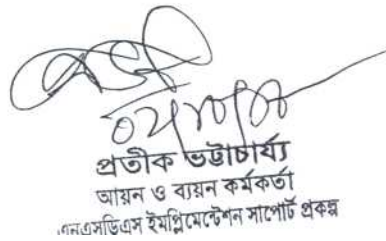 প্রতীক ভট্টাচার্য্য
আয়ন ও ব্যয়ন কর্মকর্তা
এনএসডিএস ইমপ্লিমেন্টেশন সাপোর্ট প্রকল্প